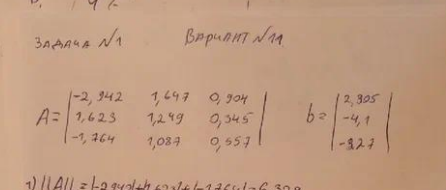 ЗАДАЧА №1 ВАРИАНТ №11
A= |-2,942 1,647 0,904|
|1,623 1,249 0,345|
|-1,764 1,087 0,557|
b= |2,905|
|-4,1|